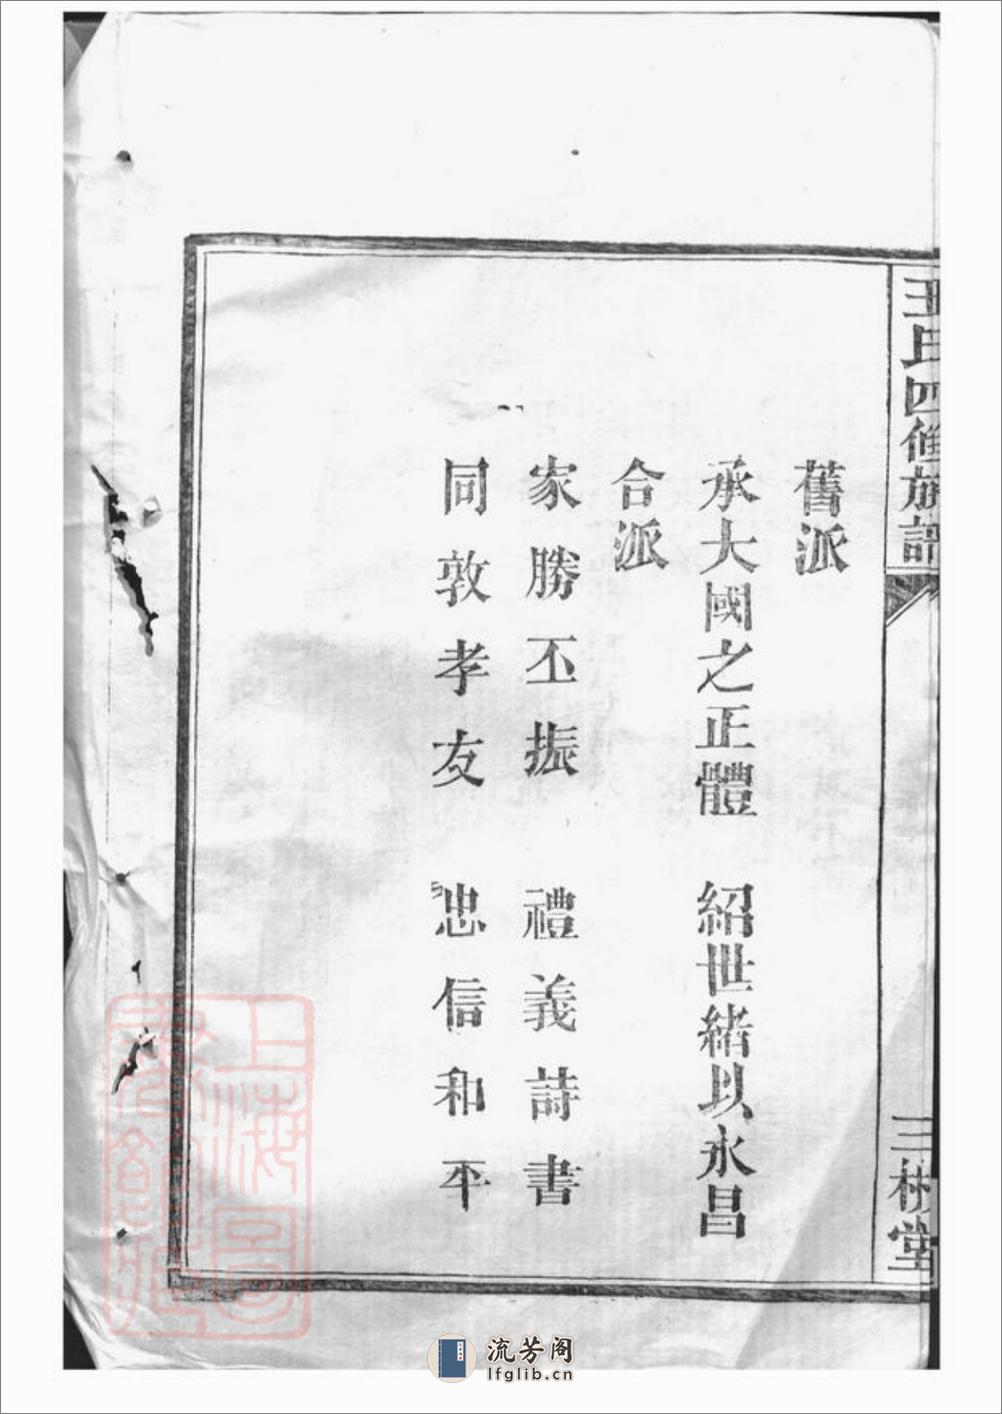 王氏四修族譜
三槐堂
舊派
承大國之正體　紹世緒以永昌
合派
家勝丕振　禮義詩書
同敦孝友　忠信和平
上海圖書館藏
流芳阁
lfglib.cn